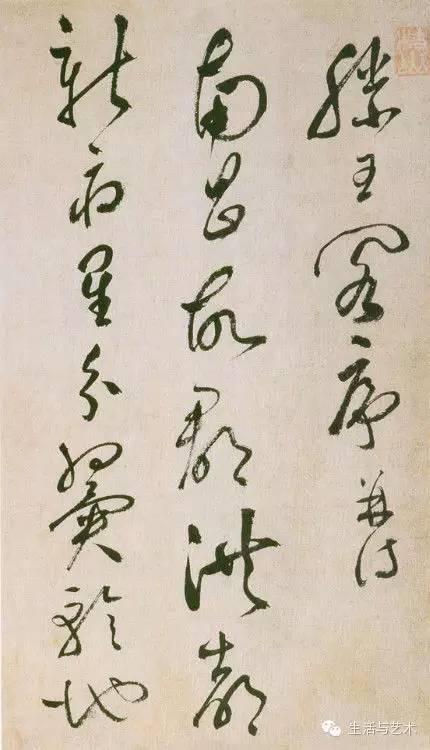 滕王閣序並詩
南昌故郡洪都
新府星分翼軫地
生活与艺术